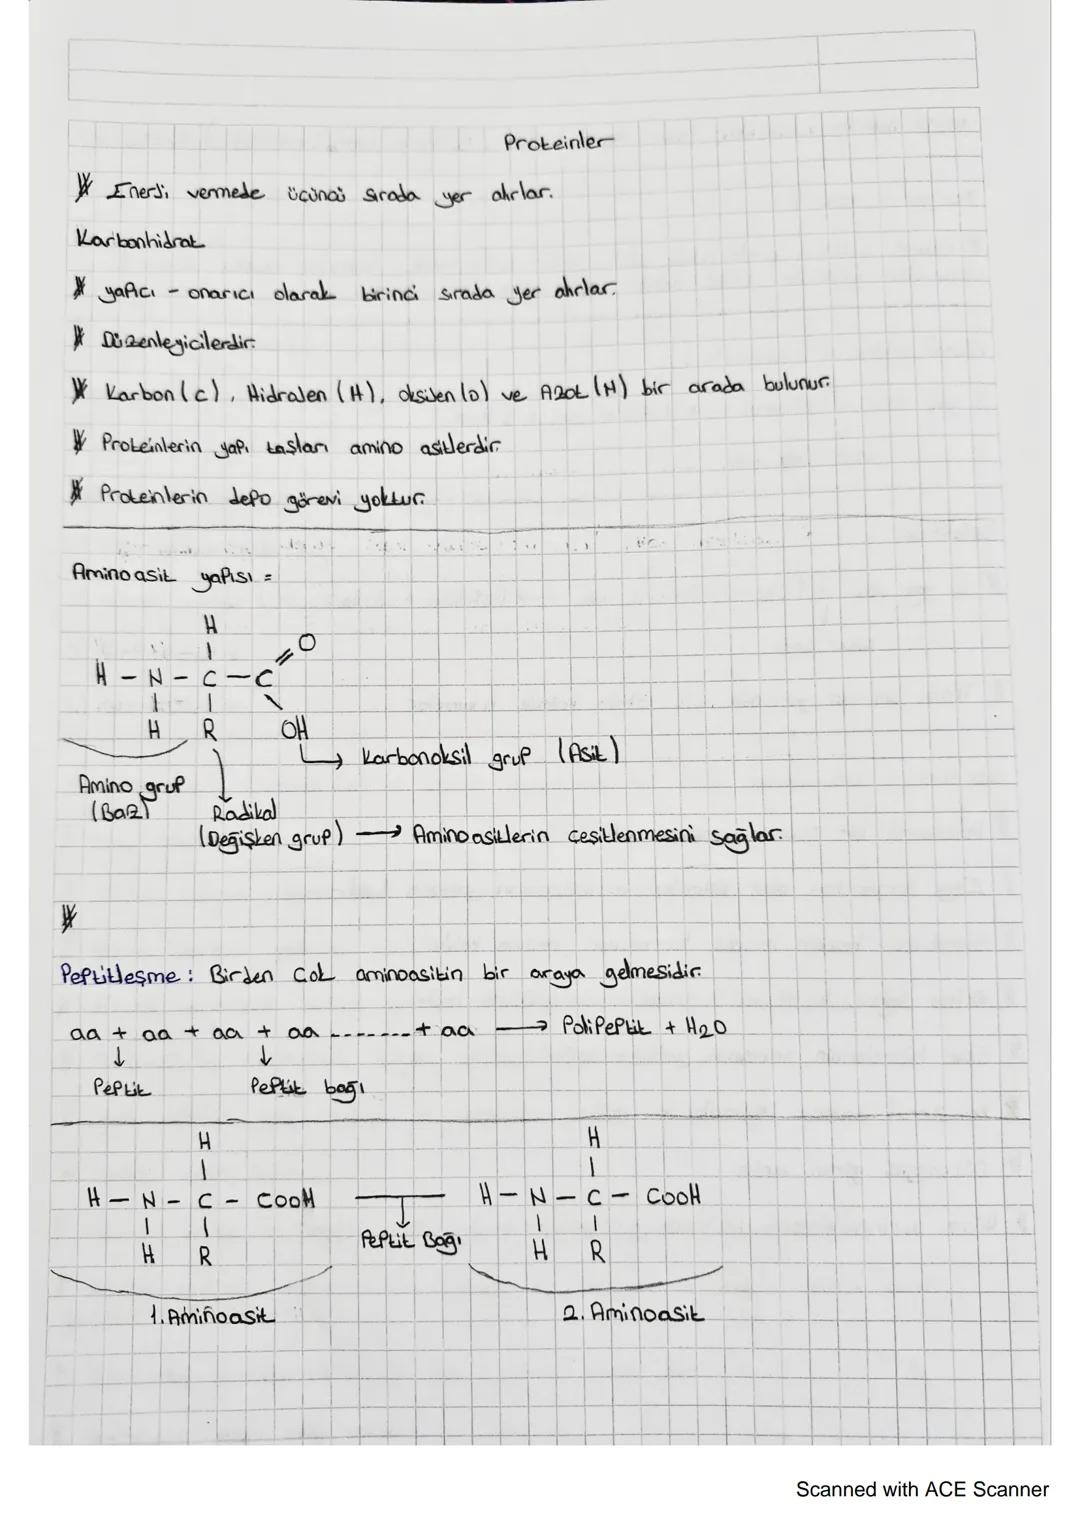 Proteinler
* Enerji vermede üçüncü sırada yer alırlar.
Karbonhidrat
* yapıcı - onarıcı olarak birinci sırada yer alırlar.
* Düzenleyicilerdir.
* Karbon (c), Hidrojen (H), oksijen (o) ve Azot (N) bir arada bulunur.
* Proteinlerin yapı taşları amino asitlerdir.
* Proteinlerin depo görevi yoktur.
Aminoasit yapısı =
H
O
H - N - C - C
H R OH
Karbonoksil grup (Asit)
Amino grup
(Baz)
Radikal
(Değişken grup) → Aminoasitlerin çeşitlenmesini sağlar.
*
Peptitleşme : Birden çok aminoasitin bir araya gelmesidir.
aa + aa + aa + aa -------+ aa → Polipeptit + H2O
↓ ↓
Peptit Peptit bağı
H H
H - N - C - COOH H - N - C - COOH
Peptit Bağı
H R H R
1. Aminoasit 2. Aminoasit
Scanned with ACE Scanner